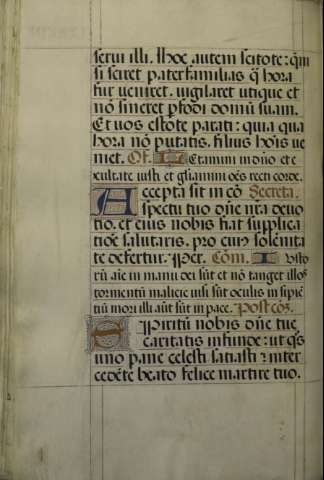 serui illi. Hoc autem scitote: qm̄
si sciret paterfamilias q̄ hora
fur veniret. vigilaret utique et
nō sineret pfodi domū suam.
Et uos estote parati: quia qua
hora nō putatis. filius hoīs ve
niet. Of. Letamini in dn̄o et e
xultate iusti et gl̄iamini oēs recti corde.
Accepta sit in cō Secreta.
spectu tuo dn̄e nr̄a deuo
tio. et eius nobis fiat supplica
tiōe salutaris. pro cuius solēnita
te defertur. Per. Com. Iusto
rū aīe in manu dei sūt et nō tanget illos
tormentū malicie visi sūt oculis insipiē
tiū mori illi aūt sūt in pace. Postcō.
Spiritū nobis dn̄e tue
caritatis infunde: ut q̄s
uno pane celesti satiasti: inter
cedēte beato felice martire tuo.